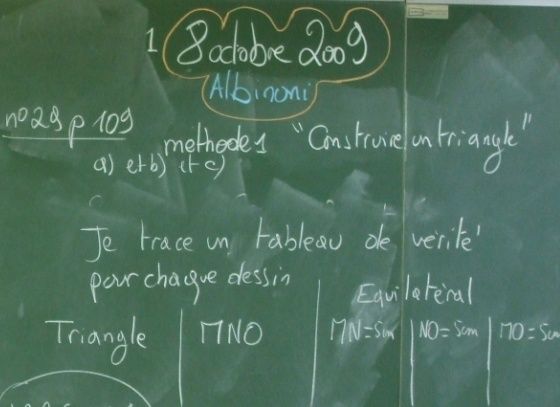 1 8 octobre 2009
Albinoni
n° 29 p 109 methode 1 "Construire un triangle"
a) et b) et c)
Je trace un tableau de verité
pour chaque dessin
Equilatéral
Triangle | MNO | MN=5cm | NO=5cm | MO=5cm